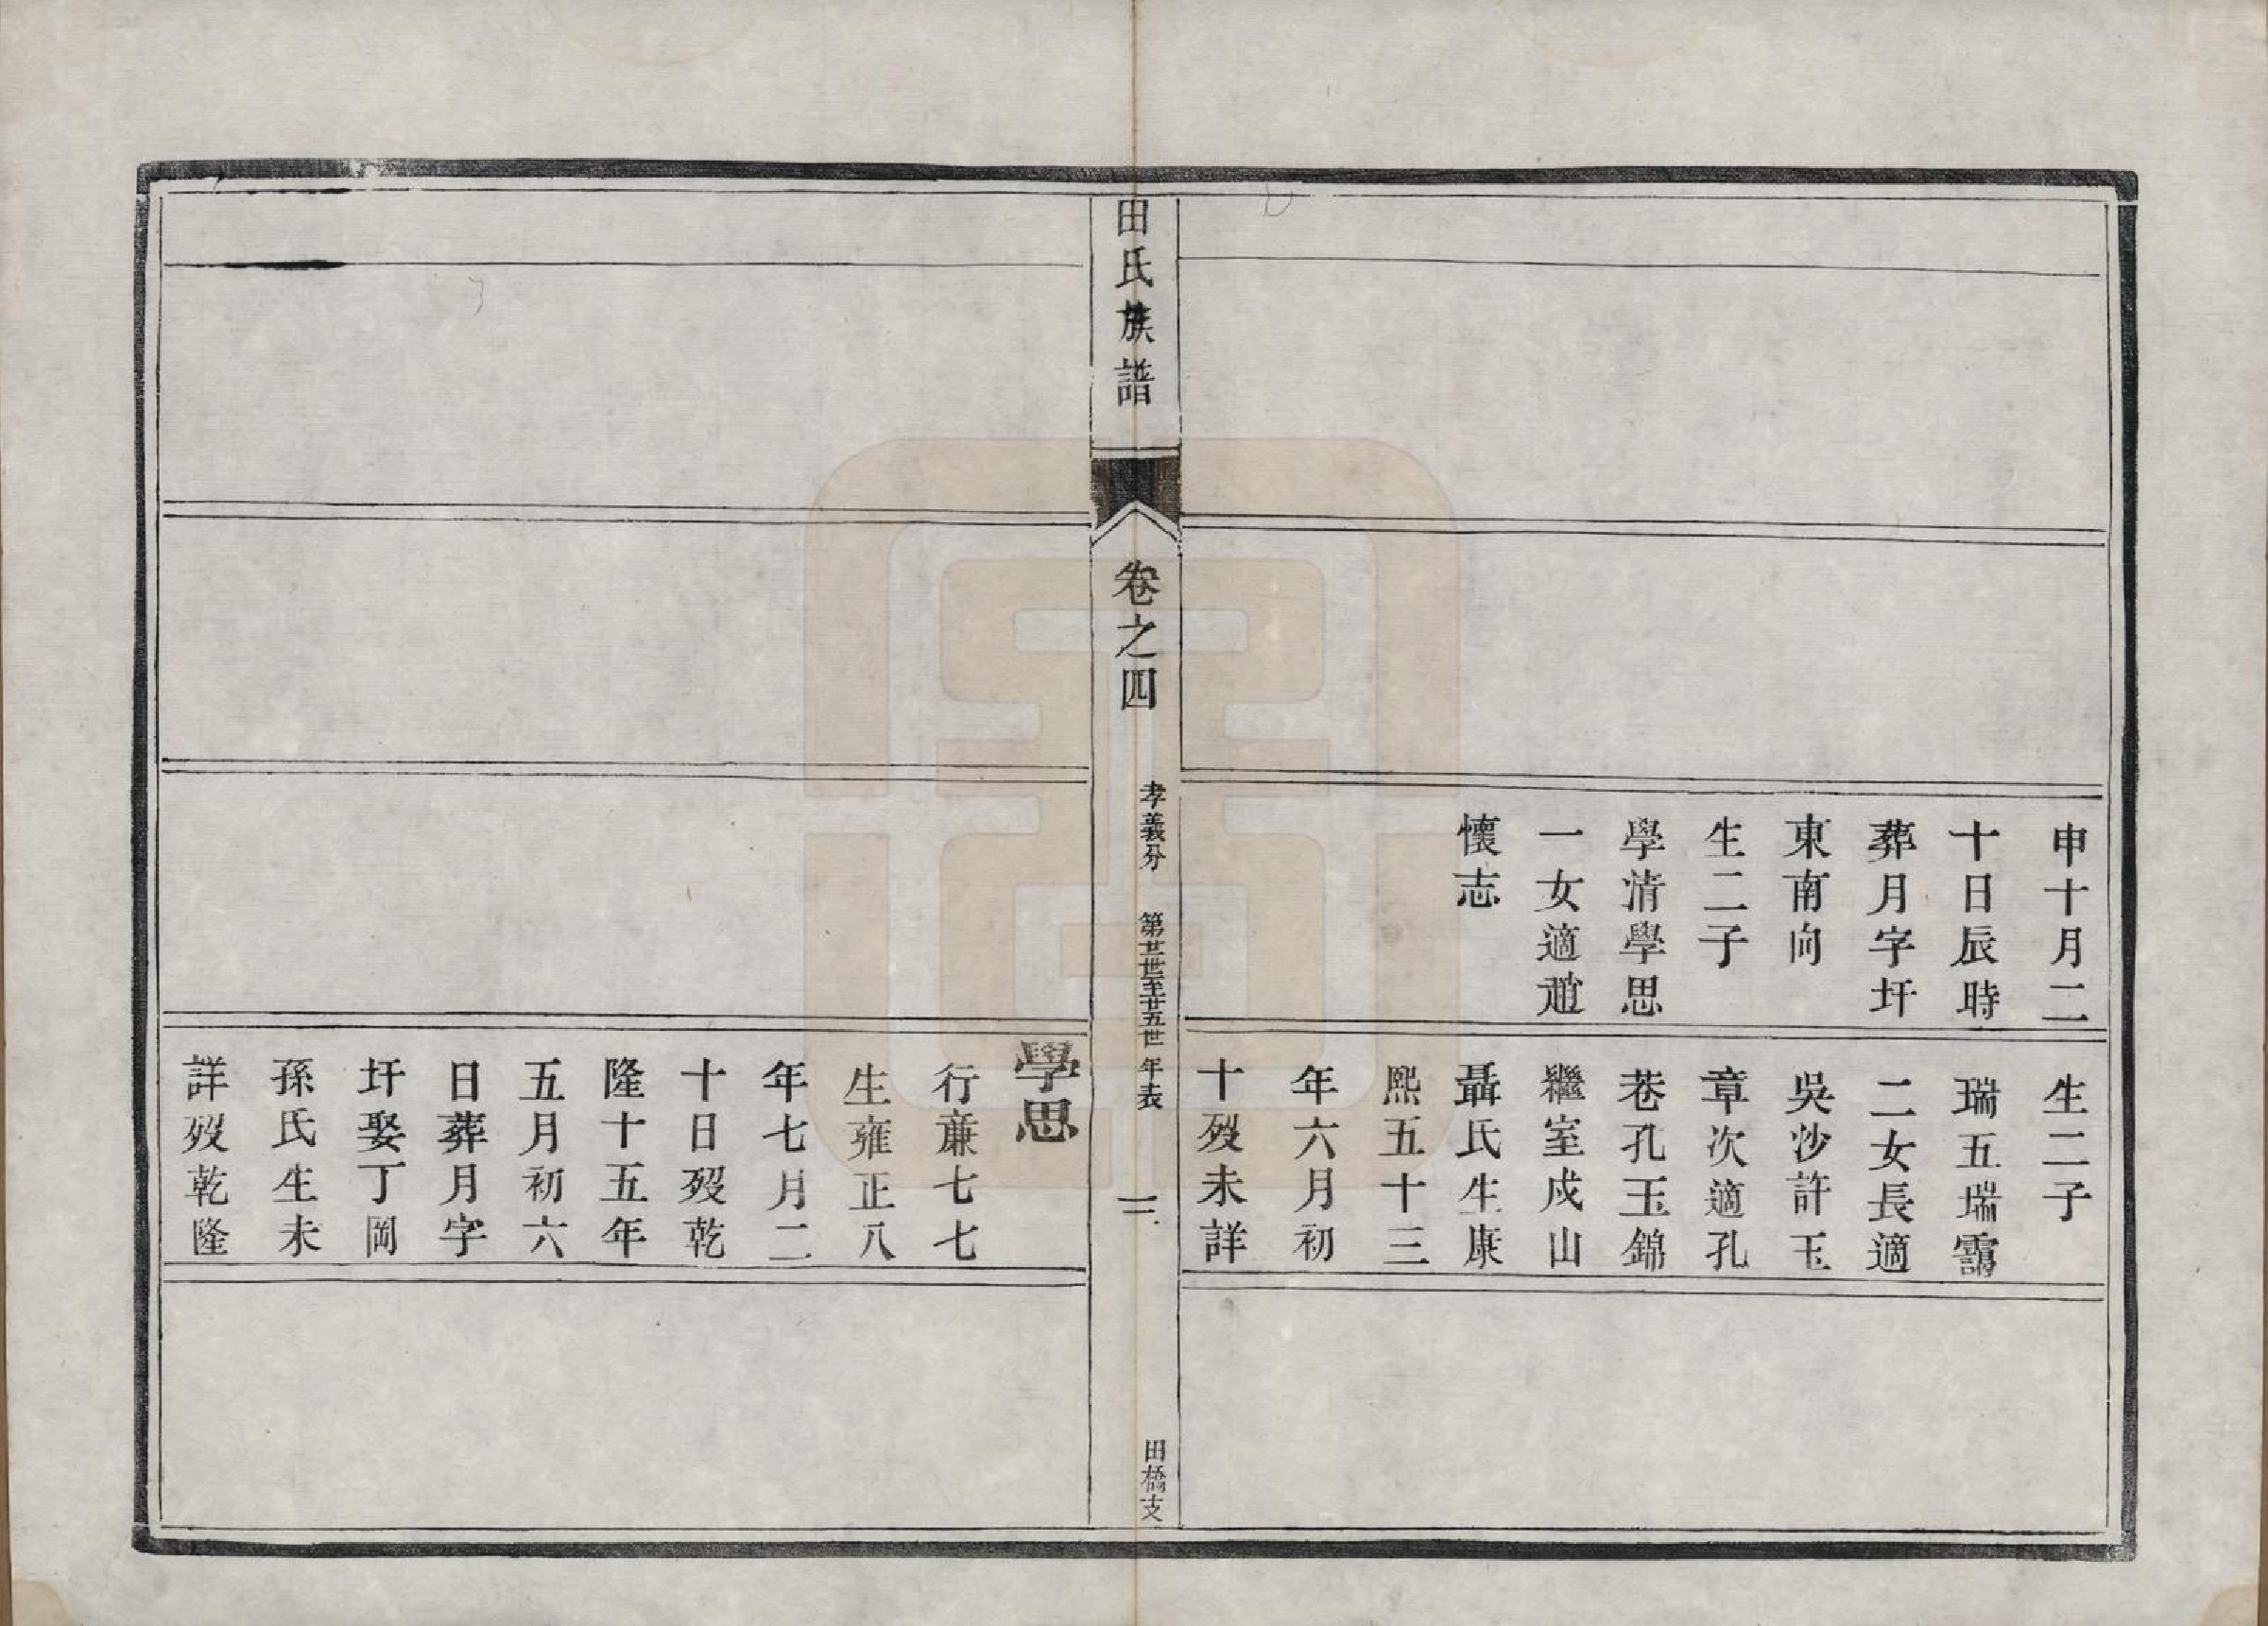 申十月二
十日辰時
葬月字圩
東南向
生二子
學清學思
一女適趙
懷志
生二子
瑞五瑞靄
二女長適
吳沙許玉
章次適孔
巷孔玉錦
繼室戍山
聶氏生康
熙五十三
年六月初
十歿未詳
田氏族譜
卷之四
孝義分
第廿世至廿五世年表
三
田橋支
學思
行蔗七七
生雍正八
年七月二
十日歿乾
隆十五年
五月初六
日葬月字
圩娶丁岡
孫氏生未
詳歿乾隆